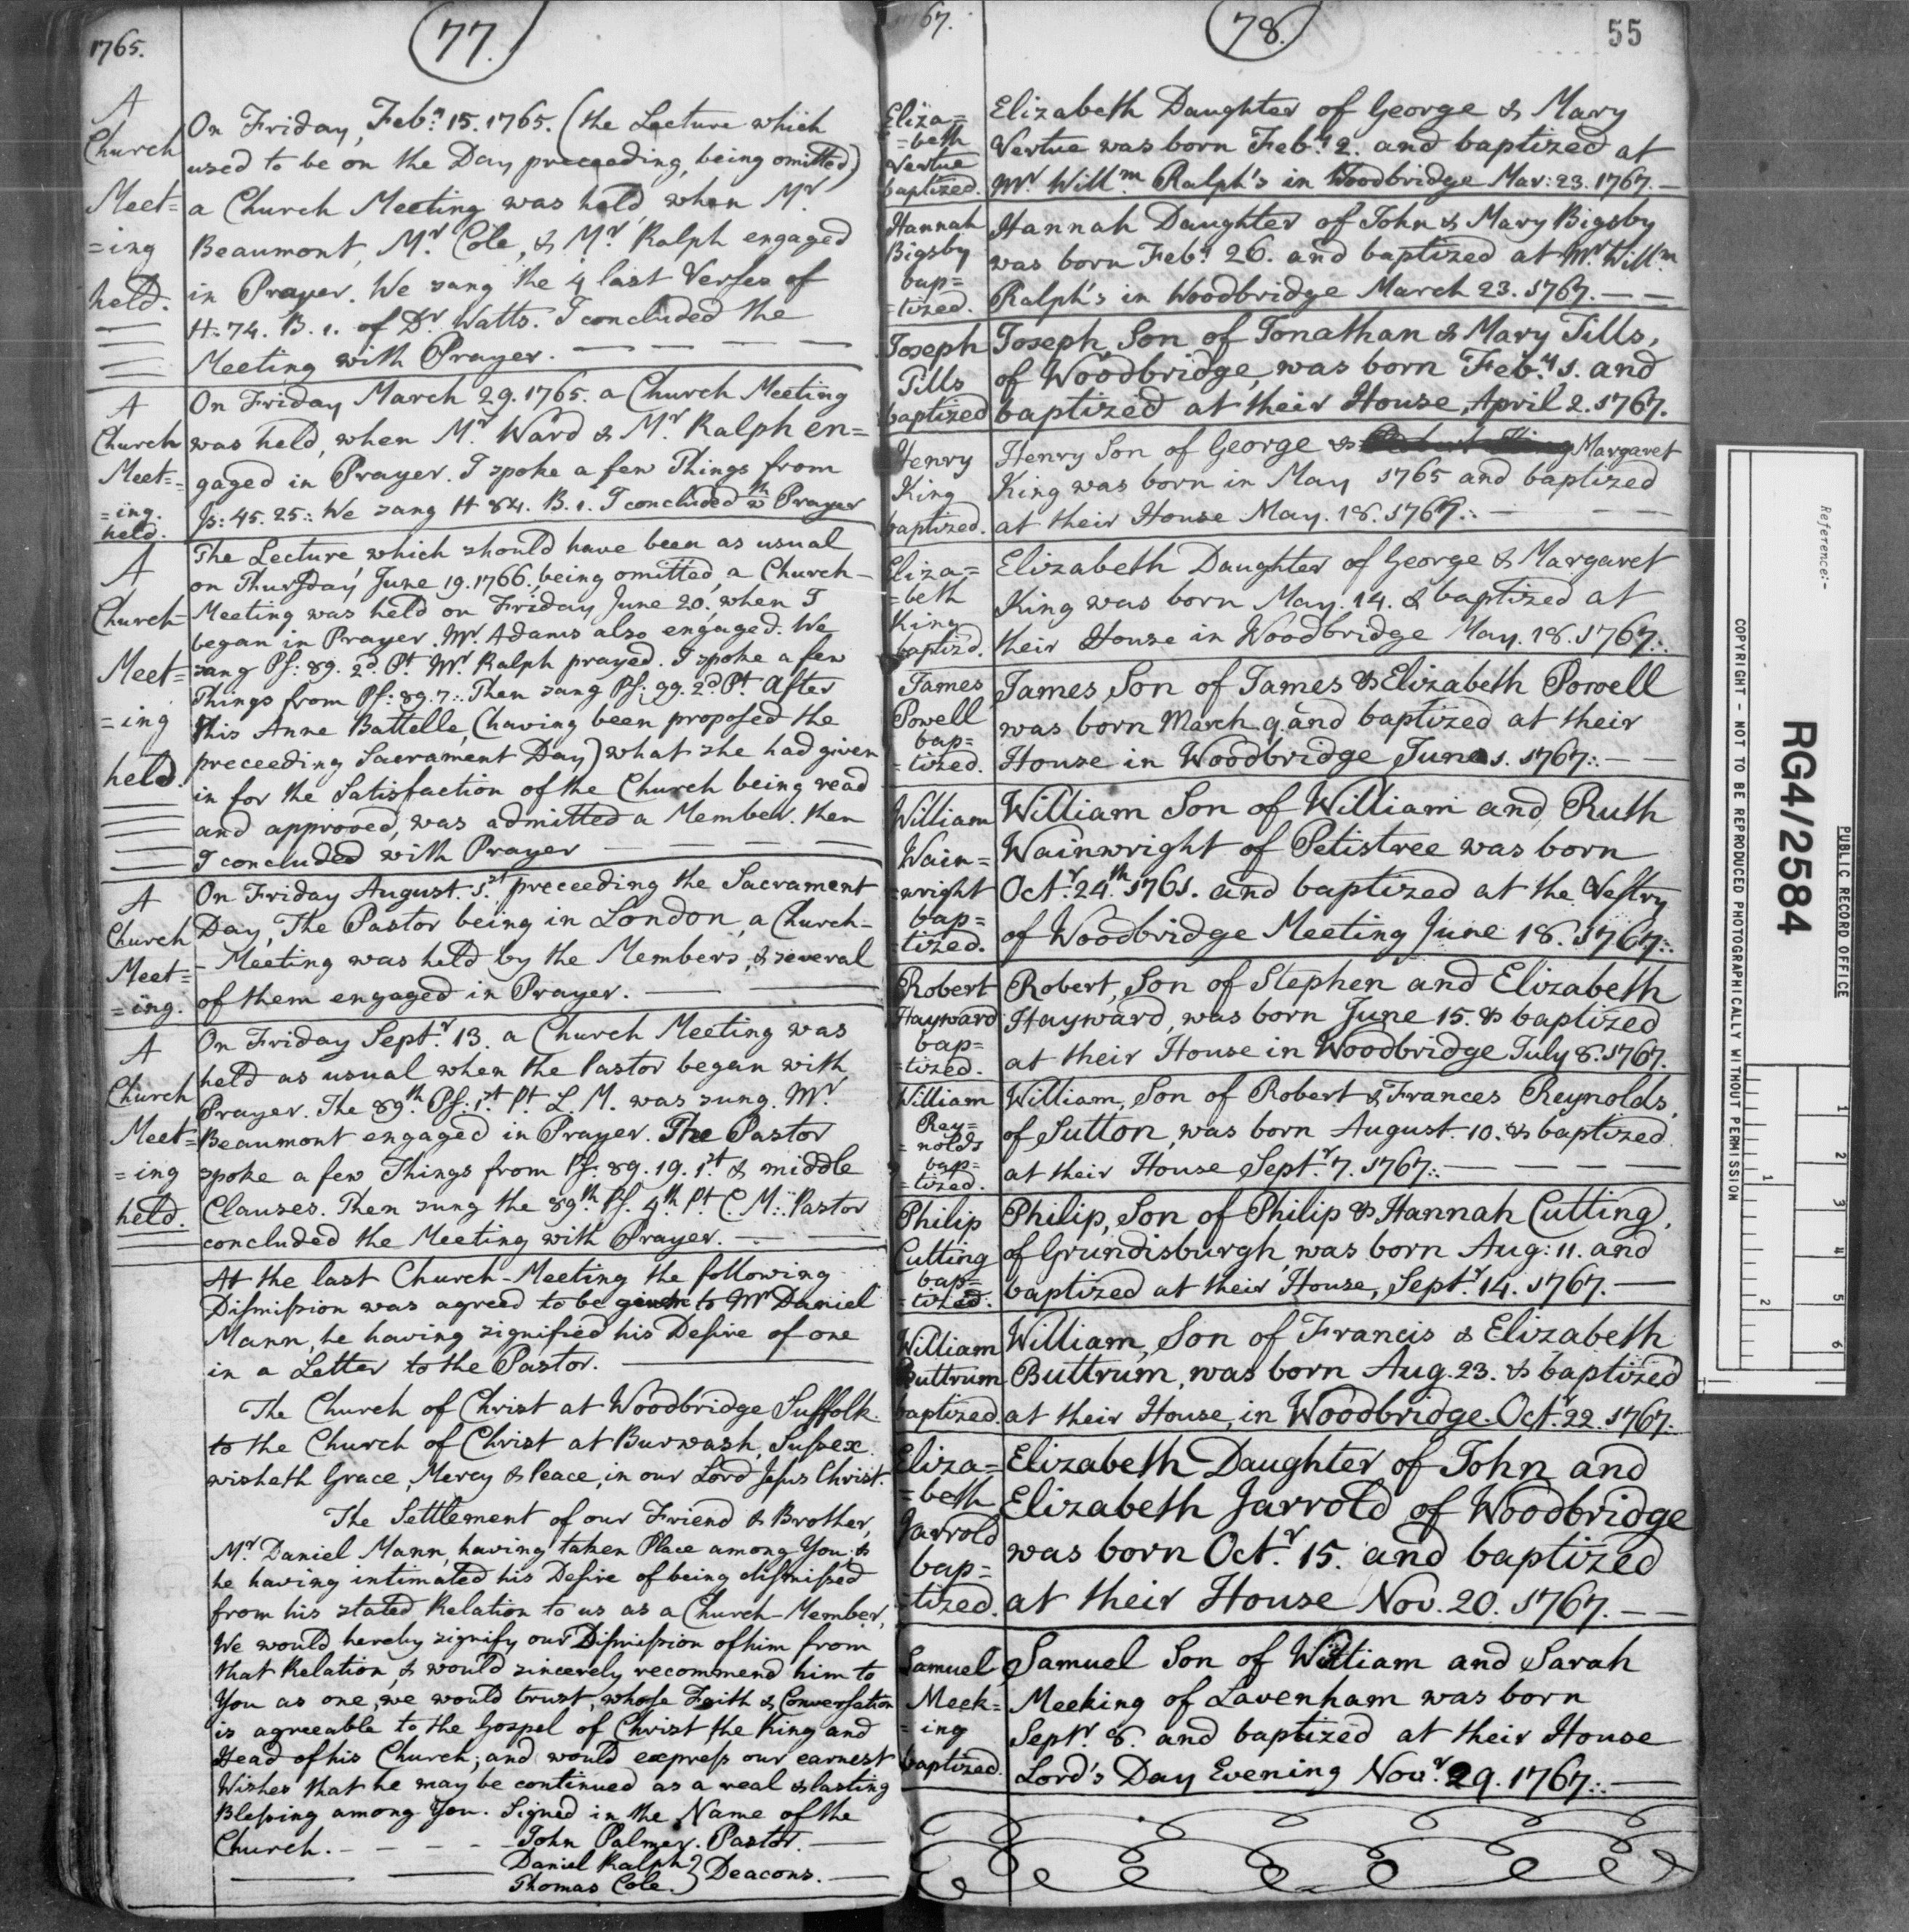 1765.
77.
A
Church
Meet=
=ing
held.
On Friday, Feb.y 15. 1765. (the Lecture which
used to be on the Day preceeding, being omitted)
a Church Meeting was held, when Mr.
Beaumont, Mr. Cole, & Mr. Ralph engaged
in Prayer. We sang the 4 last Verses of
H. 74. B. 1. of Dr. Watts. I concluded the
Meeting with Prayer.
A
Church
Meet=
=ing.
held.
On Friday March 29. 1765. a Church Meeting
was held, when Mr. Ward & Mr. Ralph en=
gaged in Prayer. I spoke a few Things from
Is: 45. 25:: We sang H 84. B. 1. I concluded wth Prayer
A
Church-
Meet=
=ing
held.
The Lecture, which should have been as usual
on Thursday June 19. 1766, being omitted, a Church-
Meeting was held on Friday June 20. when I
began in Prayer. Mr. Adams also engaged. We
sang Ps: 89. 2d. Pt. Mr. Ralph prayed. I spoke a few
Things from Ps: 89. 7:. Then sang Ps: 99. 2d. Pt. After
this Anne Battelle, (having been proposed the
preceeding Sacrament Day) what she had given
in for the Satisfaction of the Church being read
and approved, was admitted a Member. then
I concluded with Prayer
A
Church
Meet=
=ing.
On Friday August. 1.st preceeding the Sacrament
Day, The Pastor being in London, a Church-
- Meeting was held by the Members, & several
of them engaged in Prayer.
A
Church
Meet=
=ing
held.
On Friday Sept.r 13. a Church Meeting was
held as usual when the Pastor began with
Prayer. The 89.th Ps: 1.st Pt. L. M. was sung. Mr.
Beaumont engaged in Prayer. The Pastor
spoke a few Things from Ps. 89. 19. 1.st & middle
Clauses. Then sung the 89.th Ps. 4.th Pt. C. M:: Pastor
concluded the Meeting with Prayer.
At the last Church-Meeting the following
Dismission was agreed to be given to Mr. Daniel
Mann, he having signified his Desire of one
in a Letter to the Pastor.
The Church of Christ at Woodbridge Suffolk.
to the Church of Christ at Burwash, Sussex
wisheth Grace, Mercy & Peace, in our Lord Jesus Christ.
The Settlement of our Friend & Brother,
Mr. Daniel Mann, having taken Place among You; &
he having intimated his Desire of being dismissed
from his stated Relation to us as a Church-Member,
We would hereby signify our Dismission of him from
that Relation, & would sincerely recommend him to
You as one, we would trust, whose Faith & Conversation
is agreeable to the Gospel of Christ, the King and
Head of his Church; and would express our earnest
Wishes that he may be continued as a real & lasting
Blessing among You. Signed in the Name of the
Church. - - - - John Palmer. Pastor.
Daniel Ralph } Deacons.
Thomas Cole.
67.
78.
55
Eliza=
=beth
Vertue
baptized.
Elizabeth Daughter of George & Mary
Vertue was born Feb.y 2. and baptized at
Mr. Will.m Ralph's in Woodbridge Mar: 23. 1767.
Hannah
Bigsby
bap=
=tized.
Hannah Daughter of John & Mary Bigsby
was born Feb.y 26. and baptized at Mr. Will.m
Ralph's in Woodbridge March 23. 1767.
Joseph
Tills
baptized
Joseph, Son of Jonathan & Mary Tills,
of Woodbridge, was born Feb.y 1. and
baptized at their House, April 2. 1767.
Henry
King
baptized.
Henry Son of George & Margaret
King was born in May 1765 and baptized
at their House May. 18. 1767:.
Eliza=
=beth
King
baptiz'd.
Elizabeth Daughter of George & Margaret
King was born May. 14. & baptized at
their House in Woodbridge May. 18. 1767:.
James
Powell
bap=
=tized.
James, Son of James & Elizabeth Powell
was born March. 9. and baptized at their
House in Woodbridge June 1. 1767:.
William
Wain=
=wright
bap=
=tized.
William Son of William and Ruth
Wainwright of Petistree was born
Oct.r 24.th 1761. and baptized at the Vestry
of Woodbridge Meeting June 18. 1767:.
Robert
Hayward
bap=
=tized.
Robert, Son of Stephen and Elizabeth
Hayward, was born June 15. & baptized
at their House in Woodbridge July 8. 1767.
William
Rey=
=nolds
bap=
=tized.
William, Son of Robert & Frances Reynolds,
of Sutton, was born August. 10. & baptized
at their House Sept.r 7. 1767:.
Philip
Cutting
bap=
=tized.
Philip, Son of Philip & Hannah Cutting,
of Grundisburgh, was born Aug: 11. and
baptized at their House, Sept.r 14. 1767.
William
Buttrum
baptized.
William, Son of Francis & Elizabeth
Buttrum, was born Aug. 23. & baptized
at their House, in Woodbridge. Oct.r 22. 1767:.
Eliza=
=beth
Jarrold
bap=
=tized.
Elizabeth Daughter of John and
Elizabeth Jarrold of Woodbridge
was born Oct.r 15. and baptized
at their House Nov. 20. 1767.
Samuel
Meek=
=ing
baptized.
Samuel Son of William and Sarah
Meeking of Lavenham was born
Sept.r 8. and baptized at their House
Lord's Day Evening Nov.r 29. 1767:.
Reference:-
PUBLIC RECORD OFFICE
RG4/2584
COPYRIGHT - NOT TO BE REPRODUCED PHOTOGRAPHICALLY WITHOUT PERMISSION
1
2
3
4
5
6
1
2